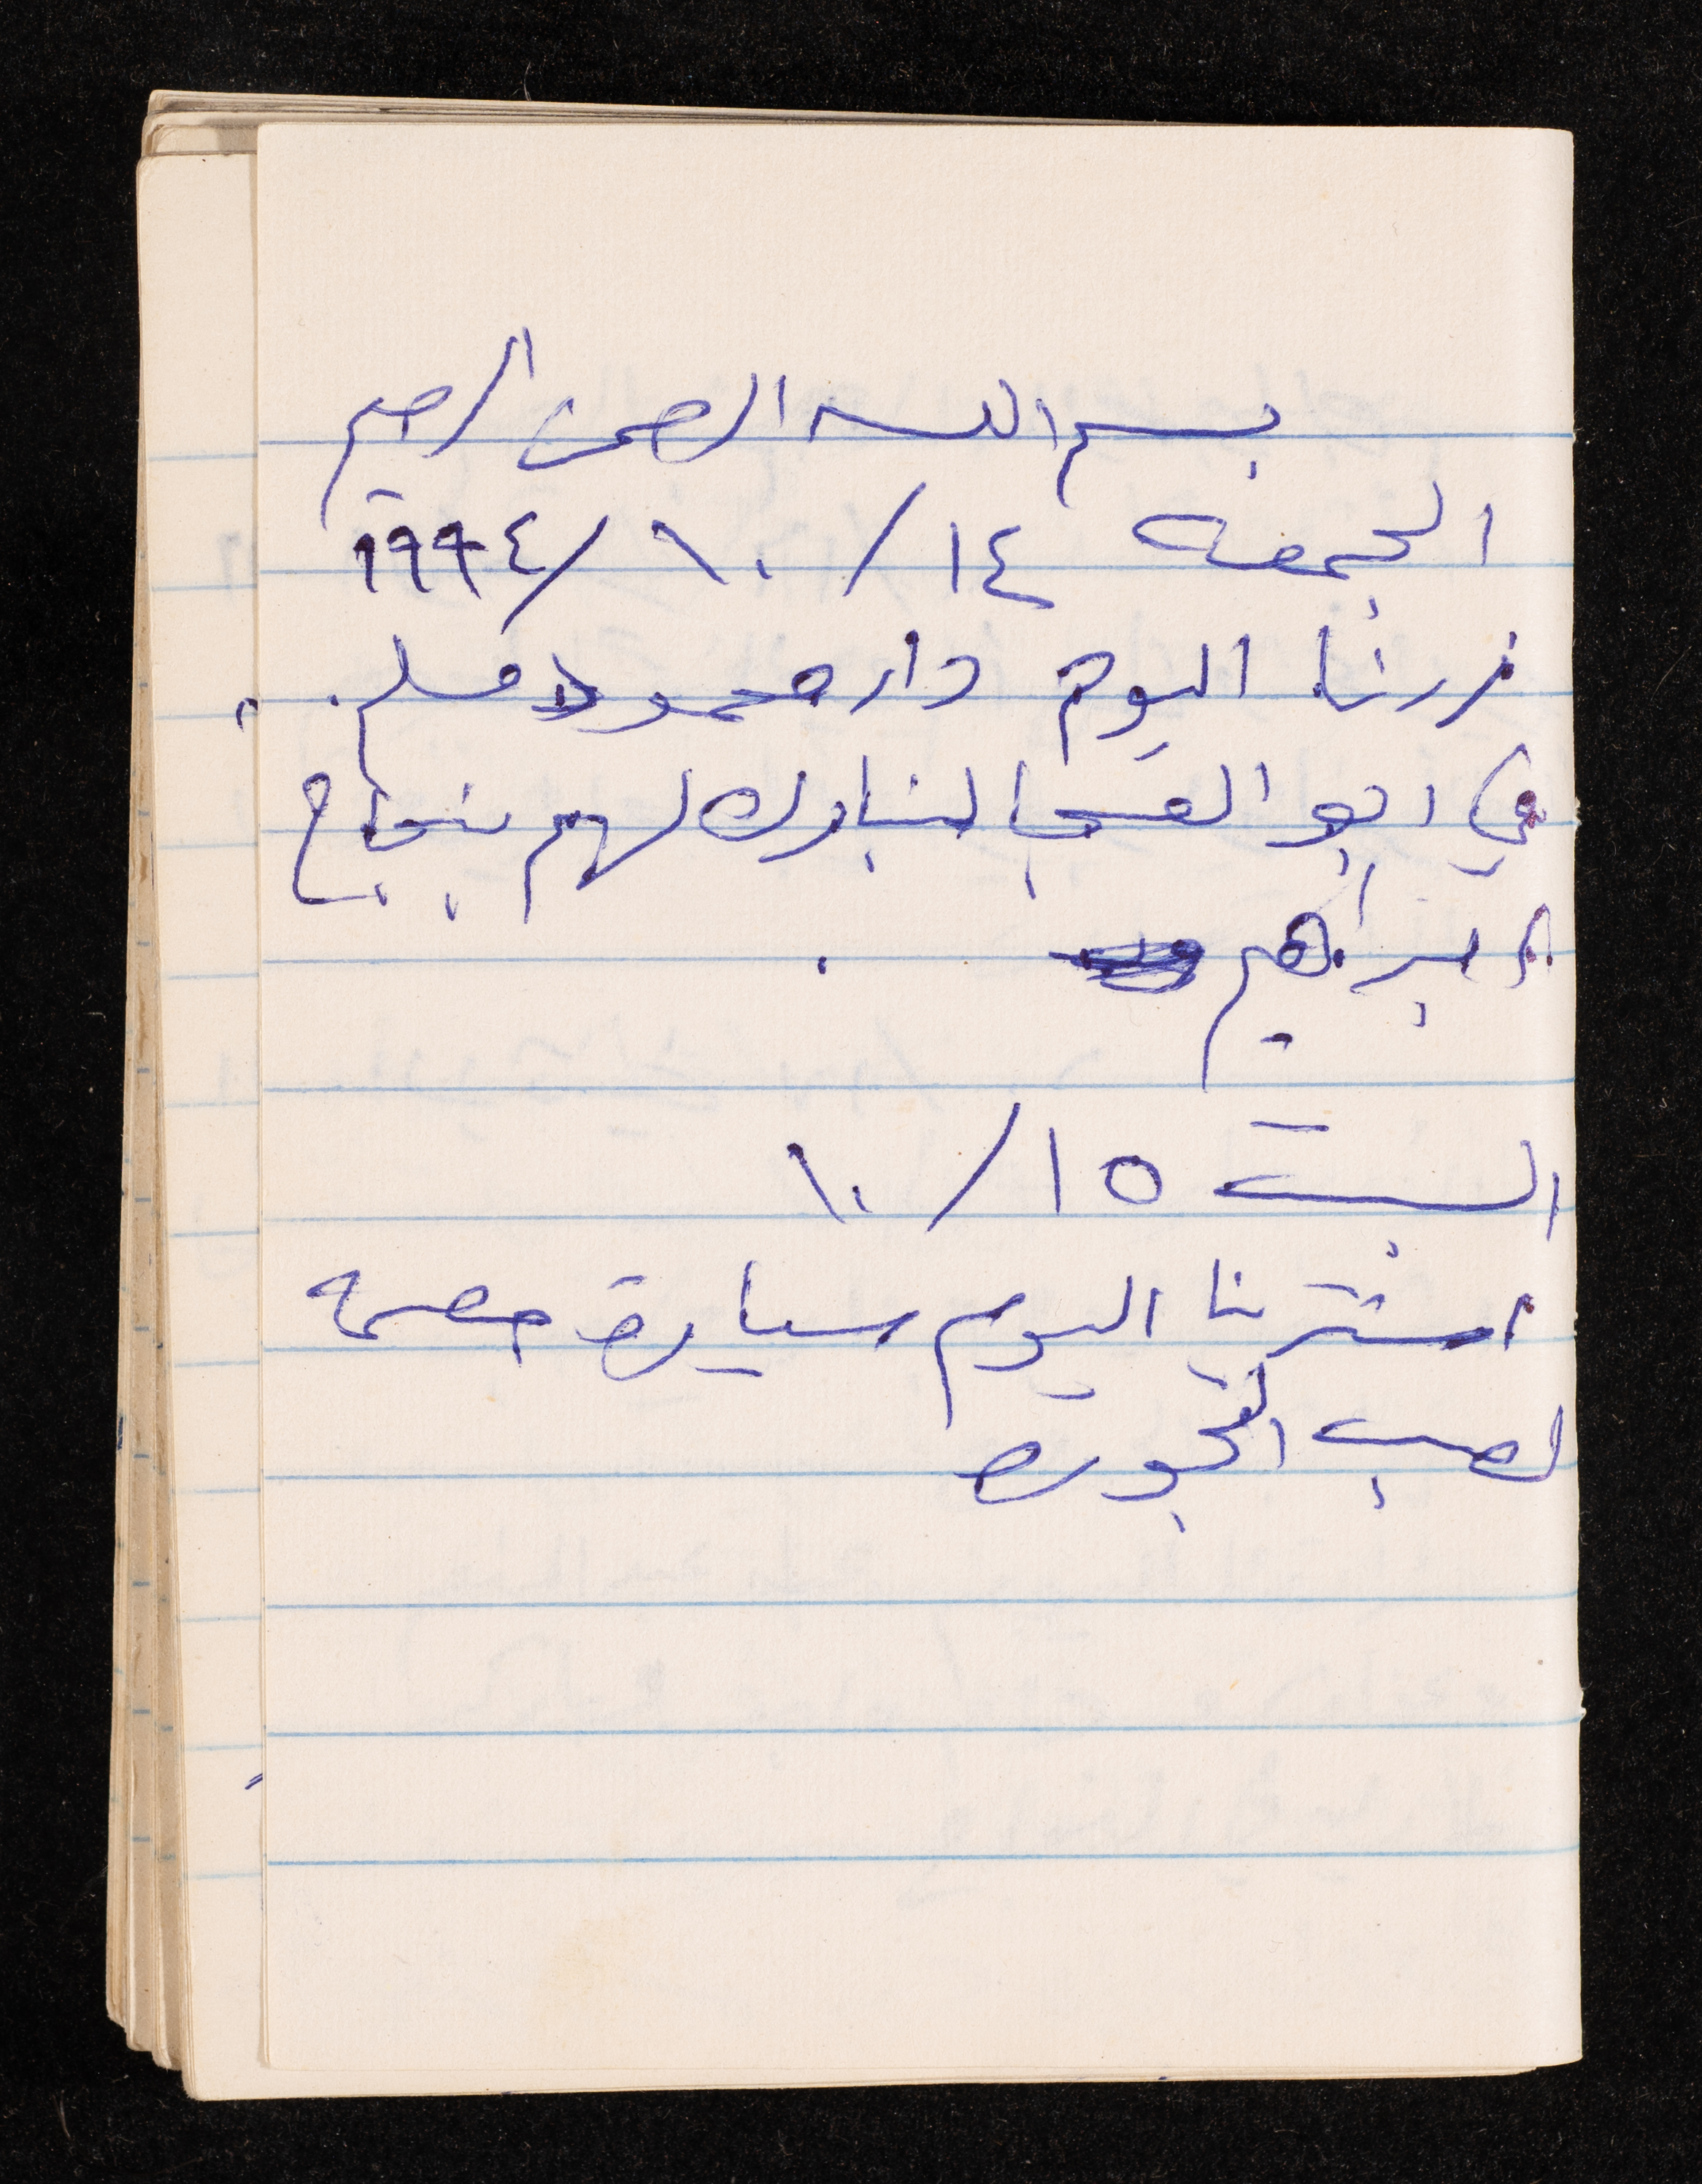 بسم الله الرحمن الرحيم
الجمعه ١٤/١٠/١٩٩٤
زرنا اليوم دار محمود مسلم
في ابو الفسجا لنبارك لهم بنجاح
ابراهيم
السبت ١٥/١٠
اشترينا اليوم سيارة حصمه
لصب الفجوره